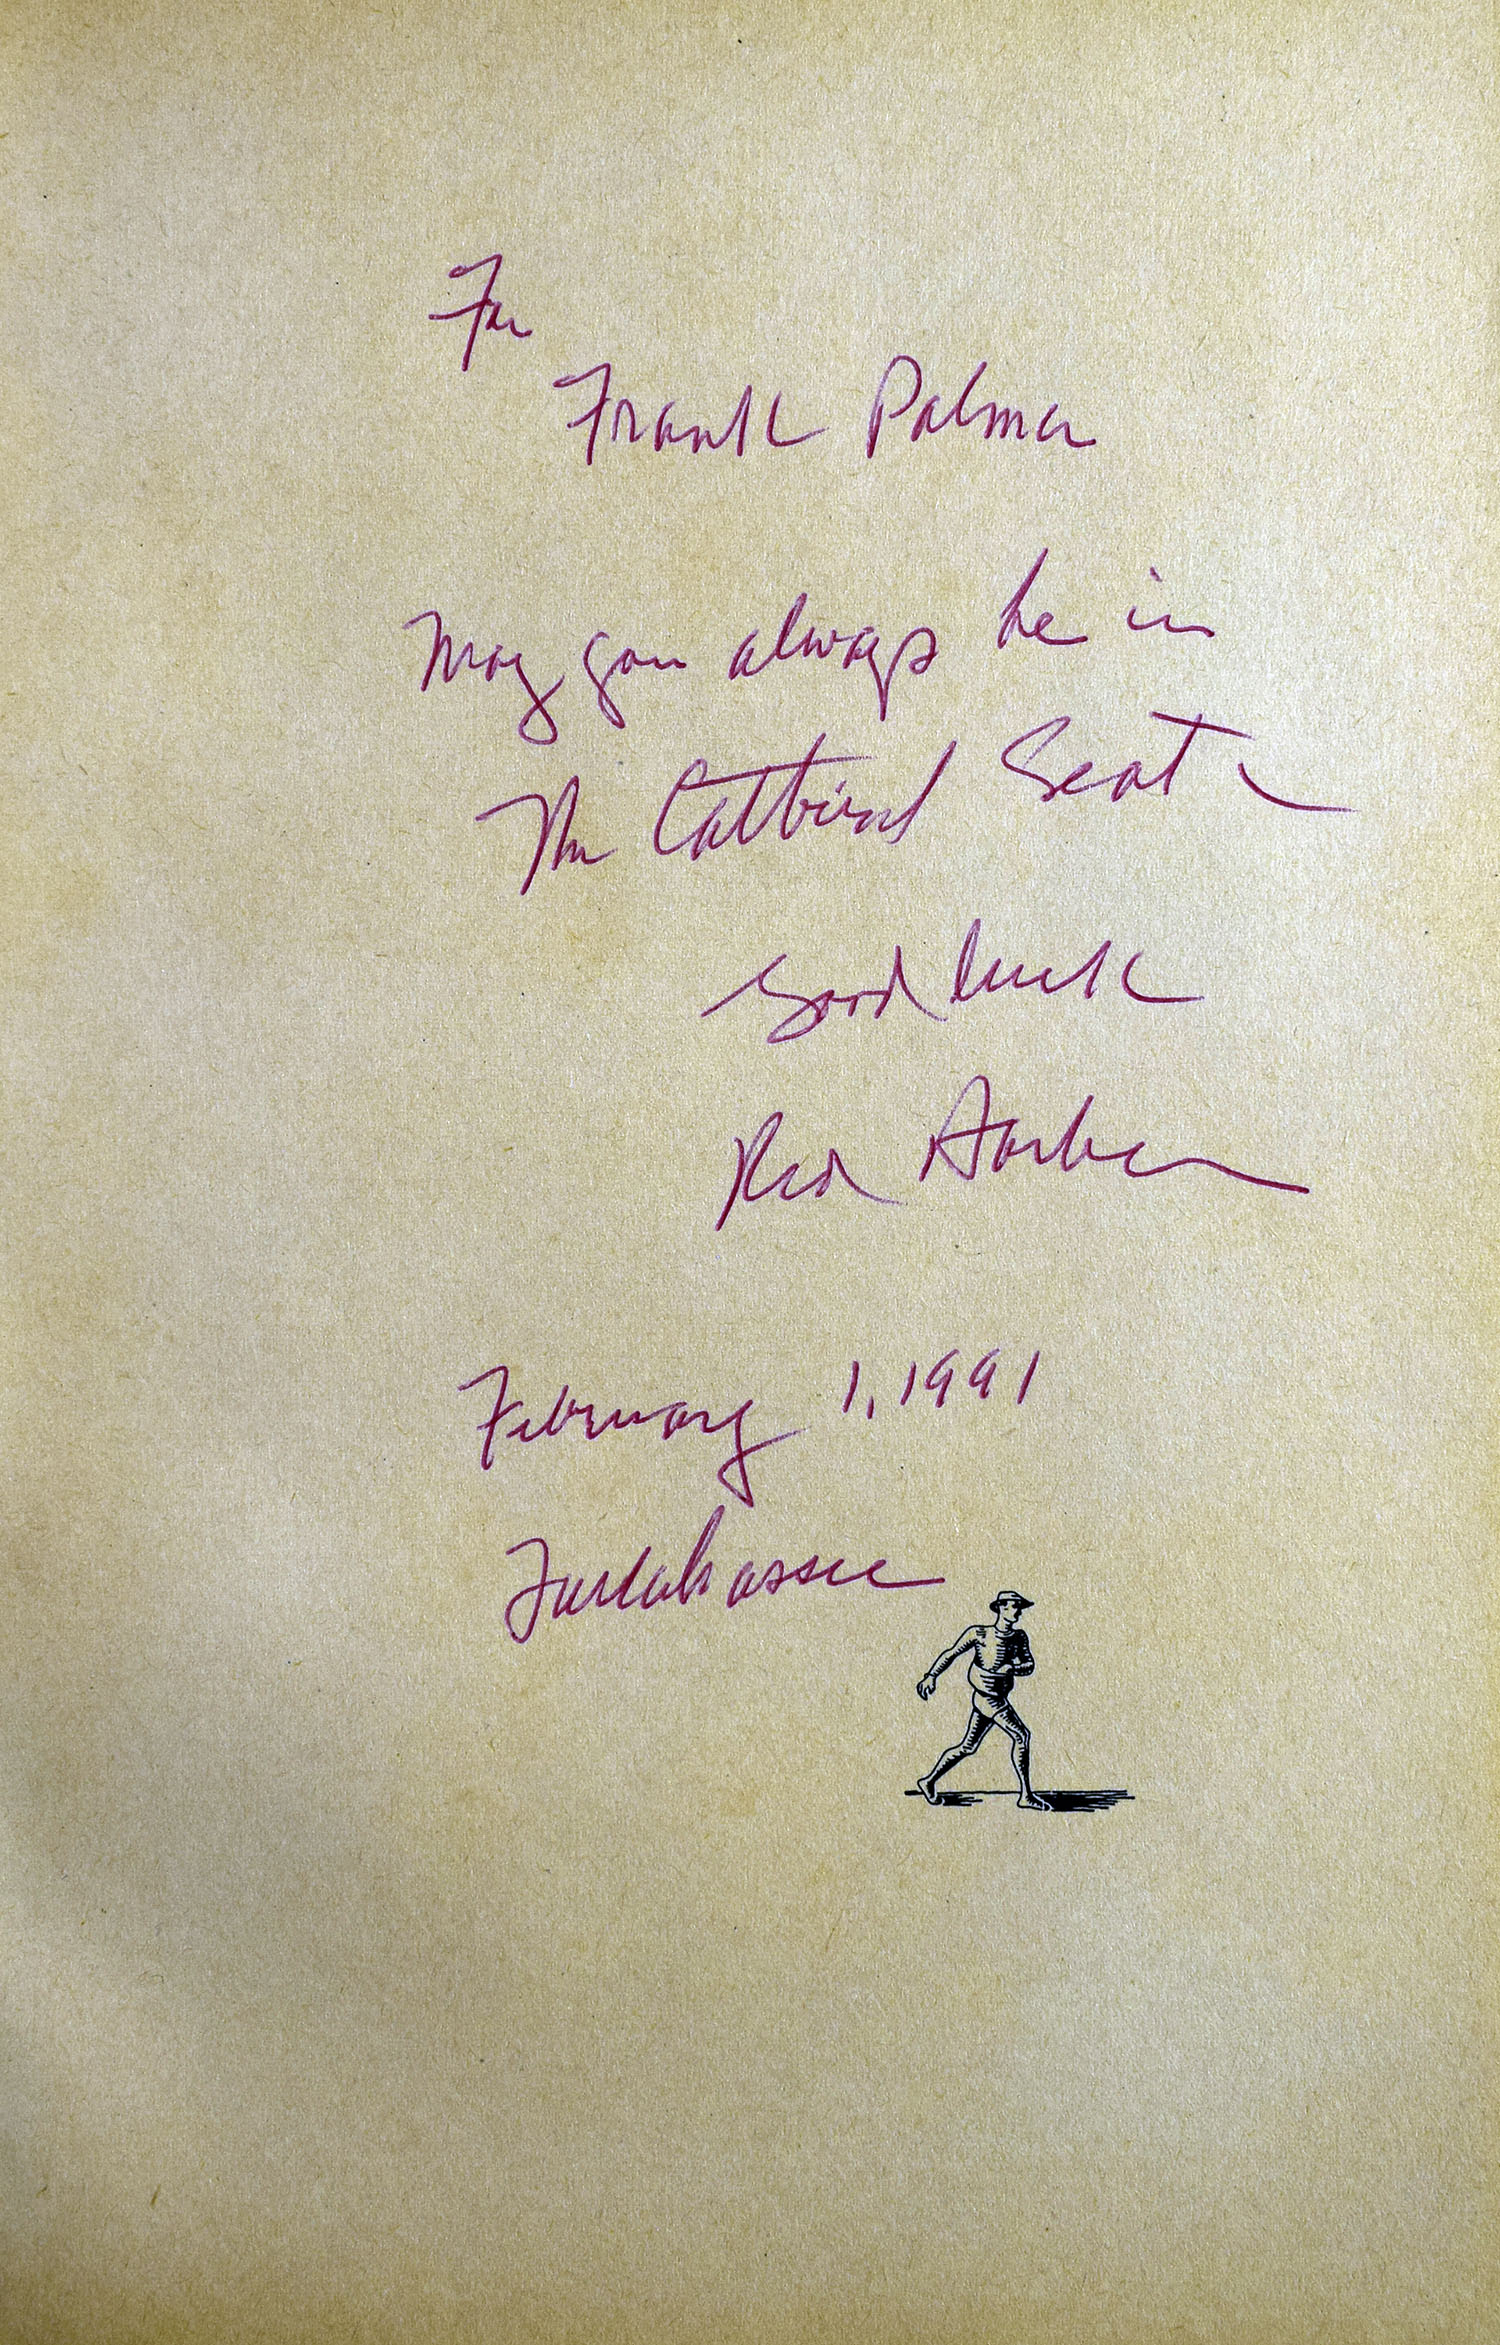 For
Frank Palmer
May you always be in
The Catbird Seat –
Good luck
Red Barber
February 1, 1991
Tallahassee